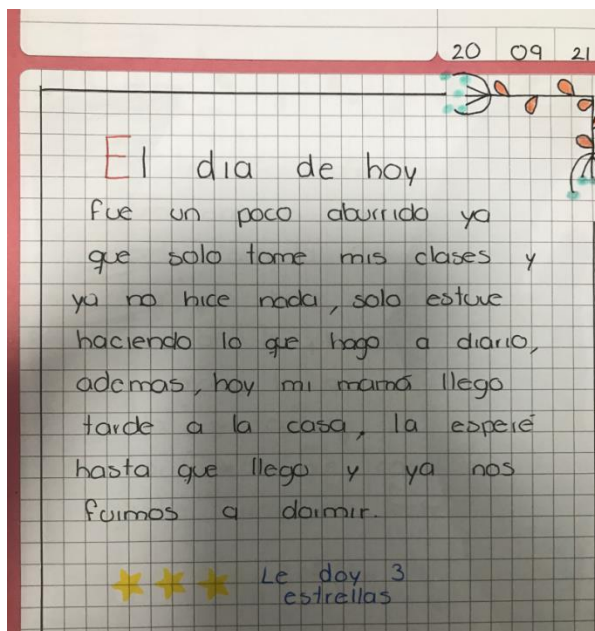 20 09 21
El dia de hoy
fue un poco aburrido ya
que solo tome mis clases y
ya no hice nada, solo estuve
haciendo lo que hago a diario,
ademas, hoy mi mamá llego
tarde a la casa, la esperé
hasta que llego y ya nos
fuimos a dormir.
Le doy 3
estrellas